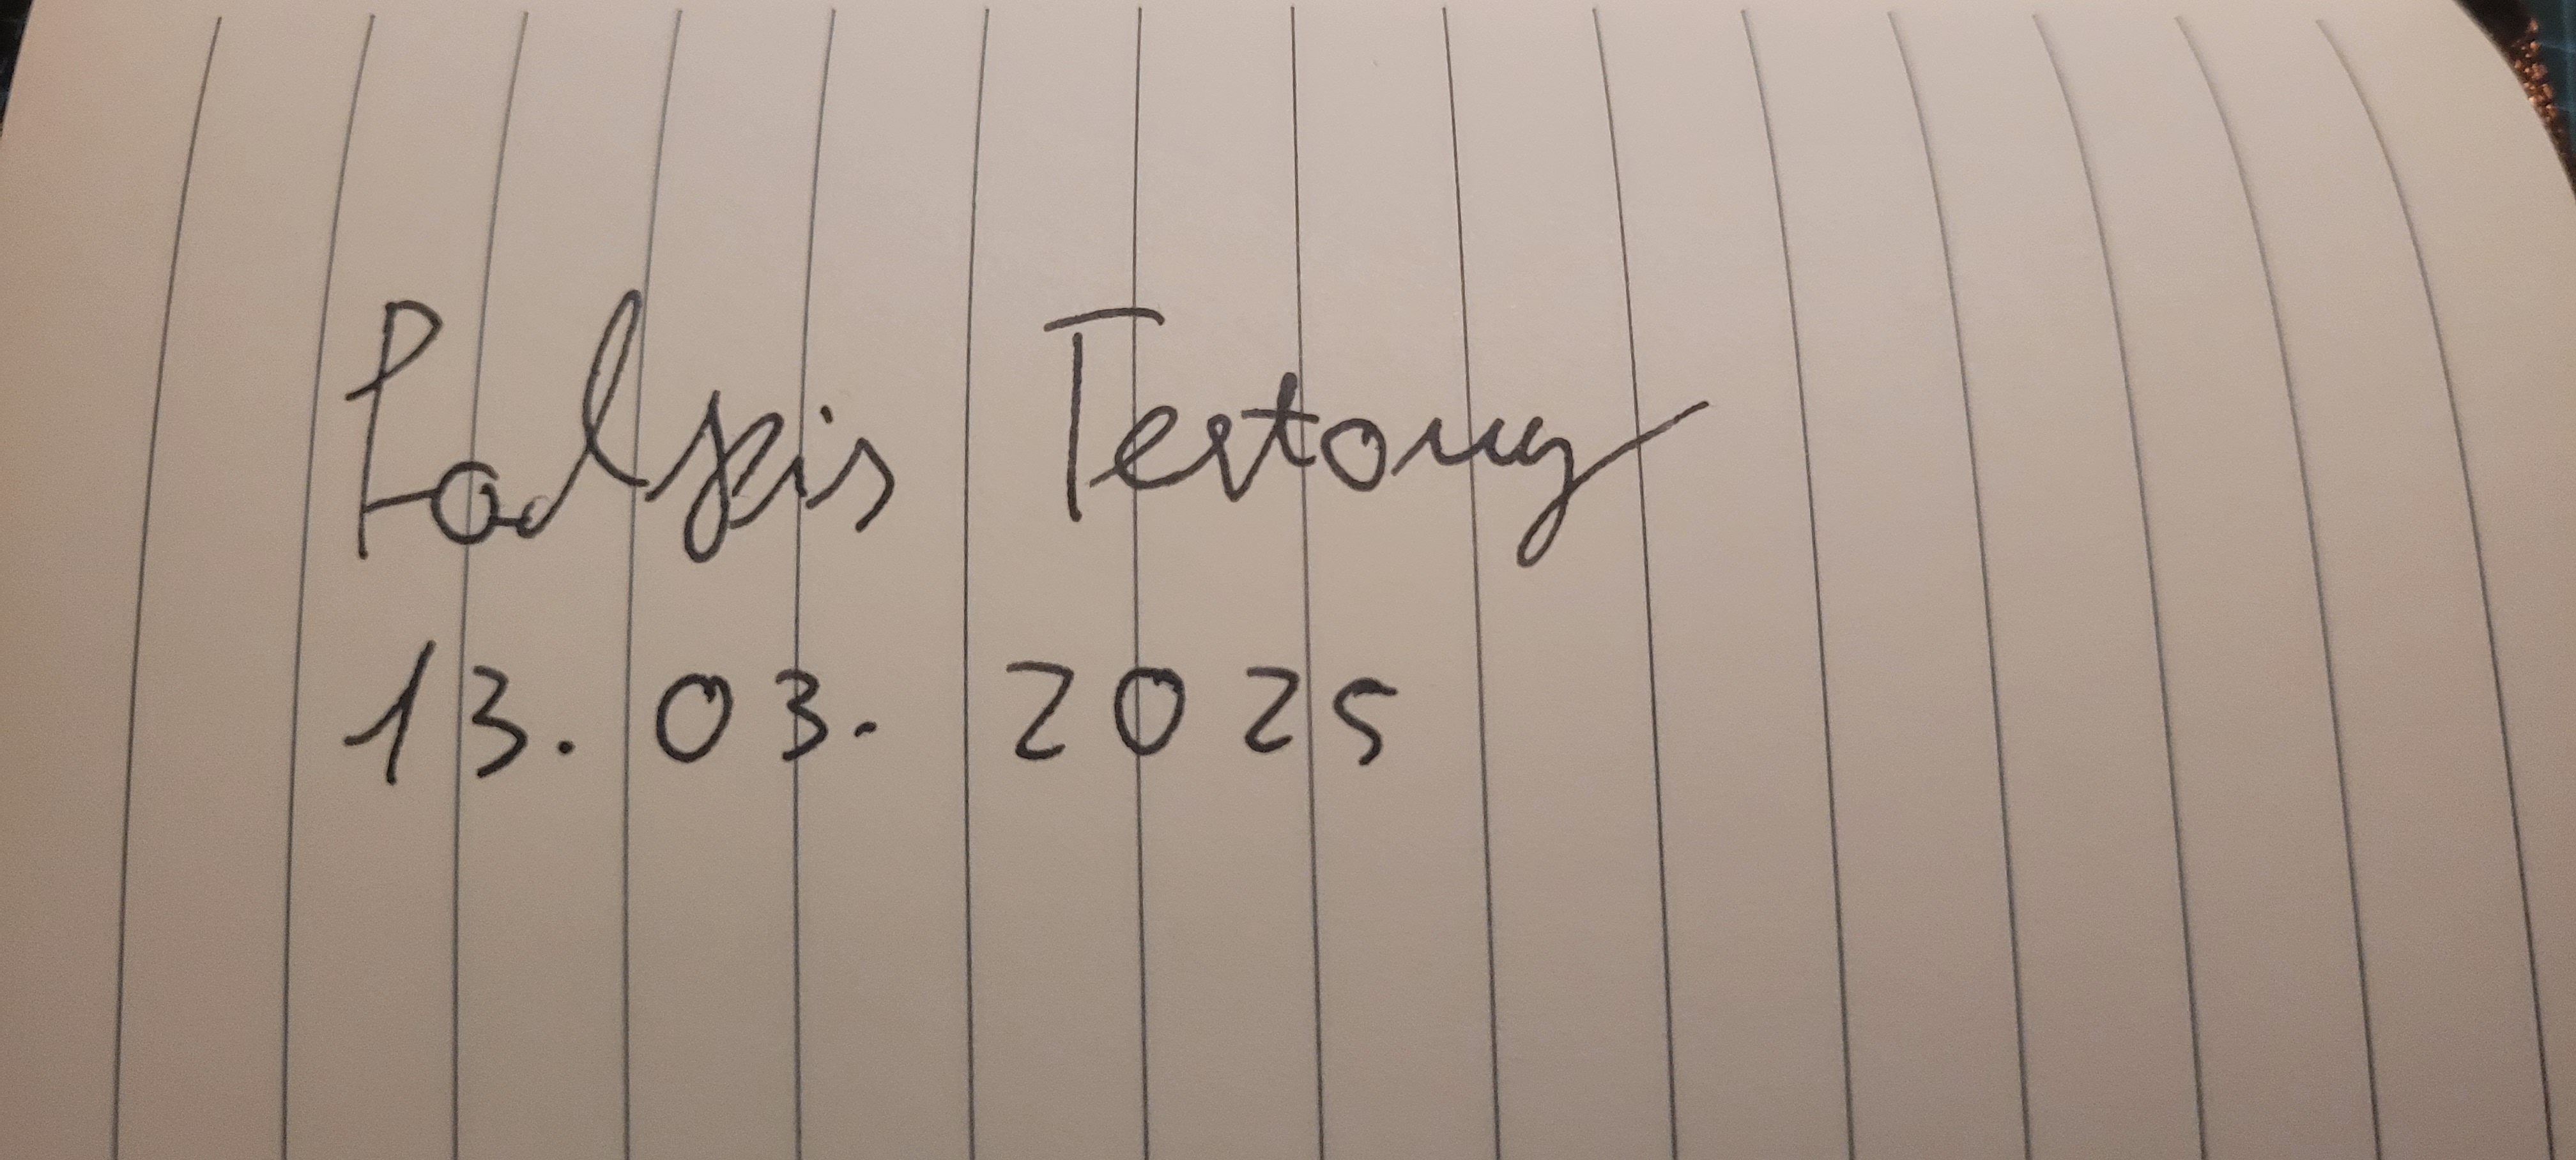 Podpis Testowy
13.03.2025